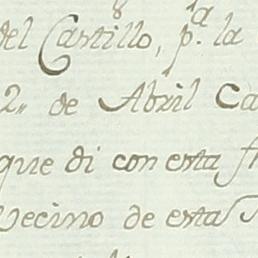 del Castillo, p.ª la
2,, de Abril Ca
que di con esta f
Vecino de esta